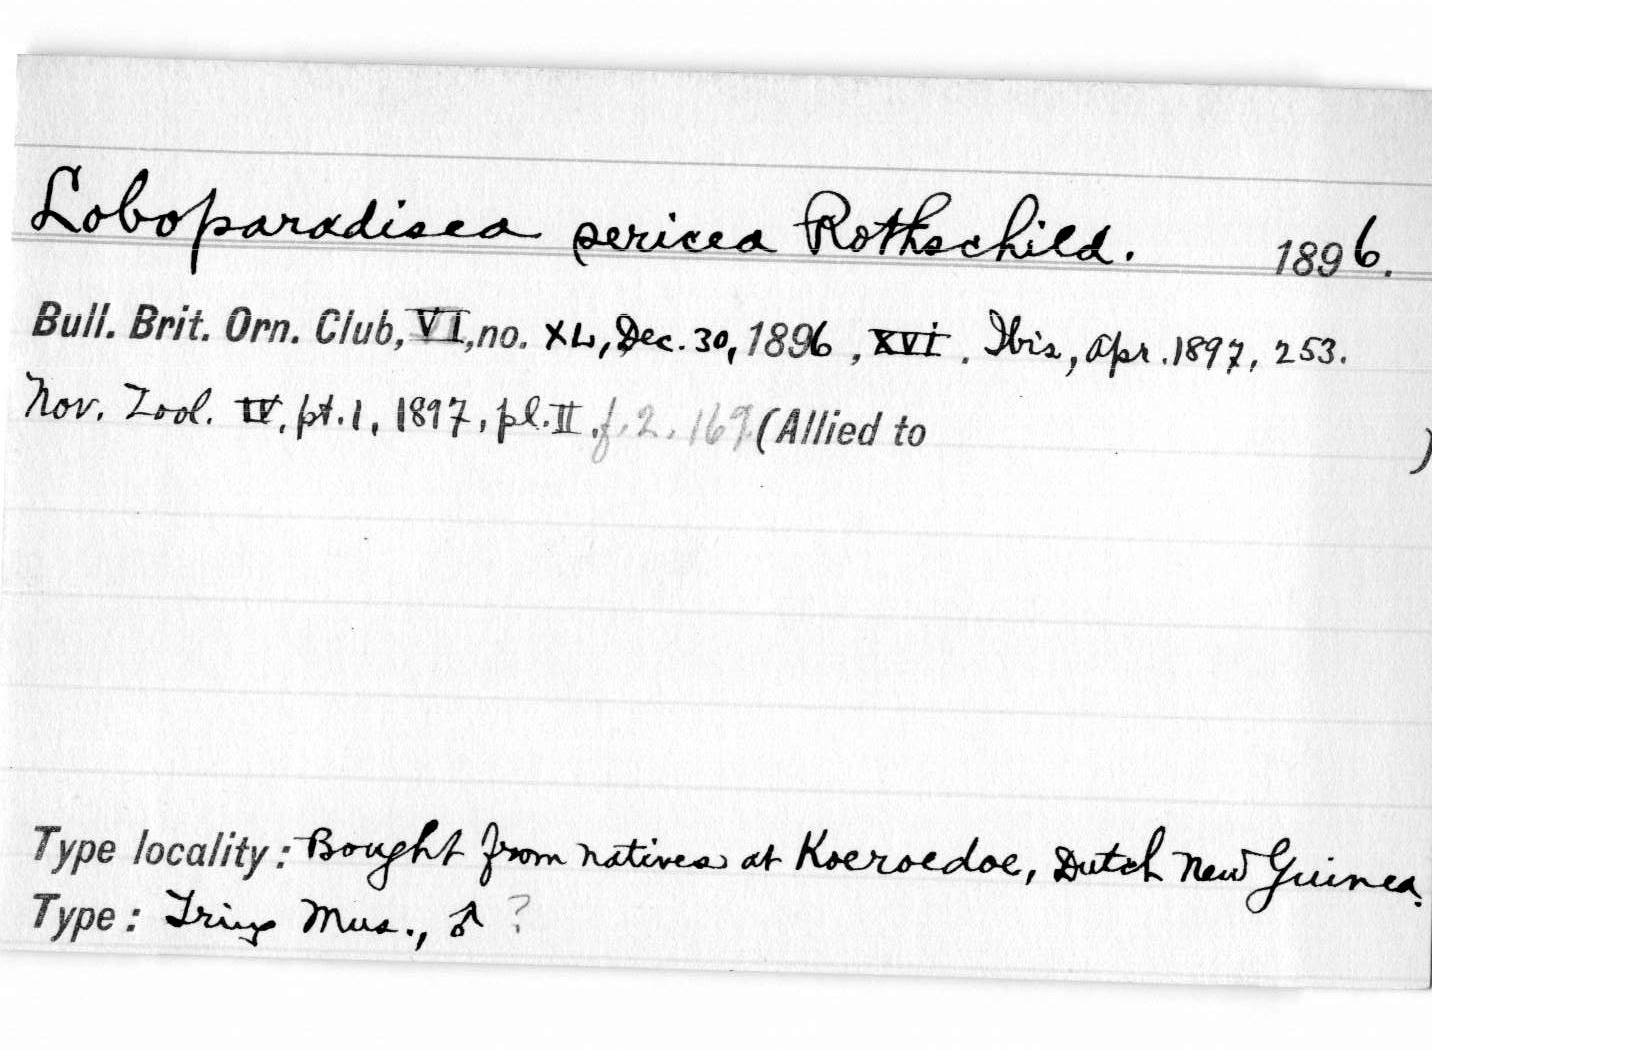 Loboparadisea sericea Rothschild. 1896.
Bull. Brit. Orn. Club, VI, no. XL, Dec. 30, 1896, xvi. Ibis, Apr. 1897, 253.
Nov. Zool. IV, pt. 1, 1897, pl. II. f. 2. 169. (Allied to )
Type locality: Bought from natives at Koeroedoe, Dutch New Guinea.
Type: Tring Mus., ♂ ?